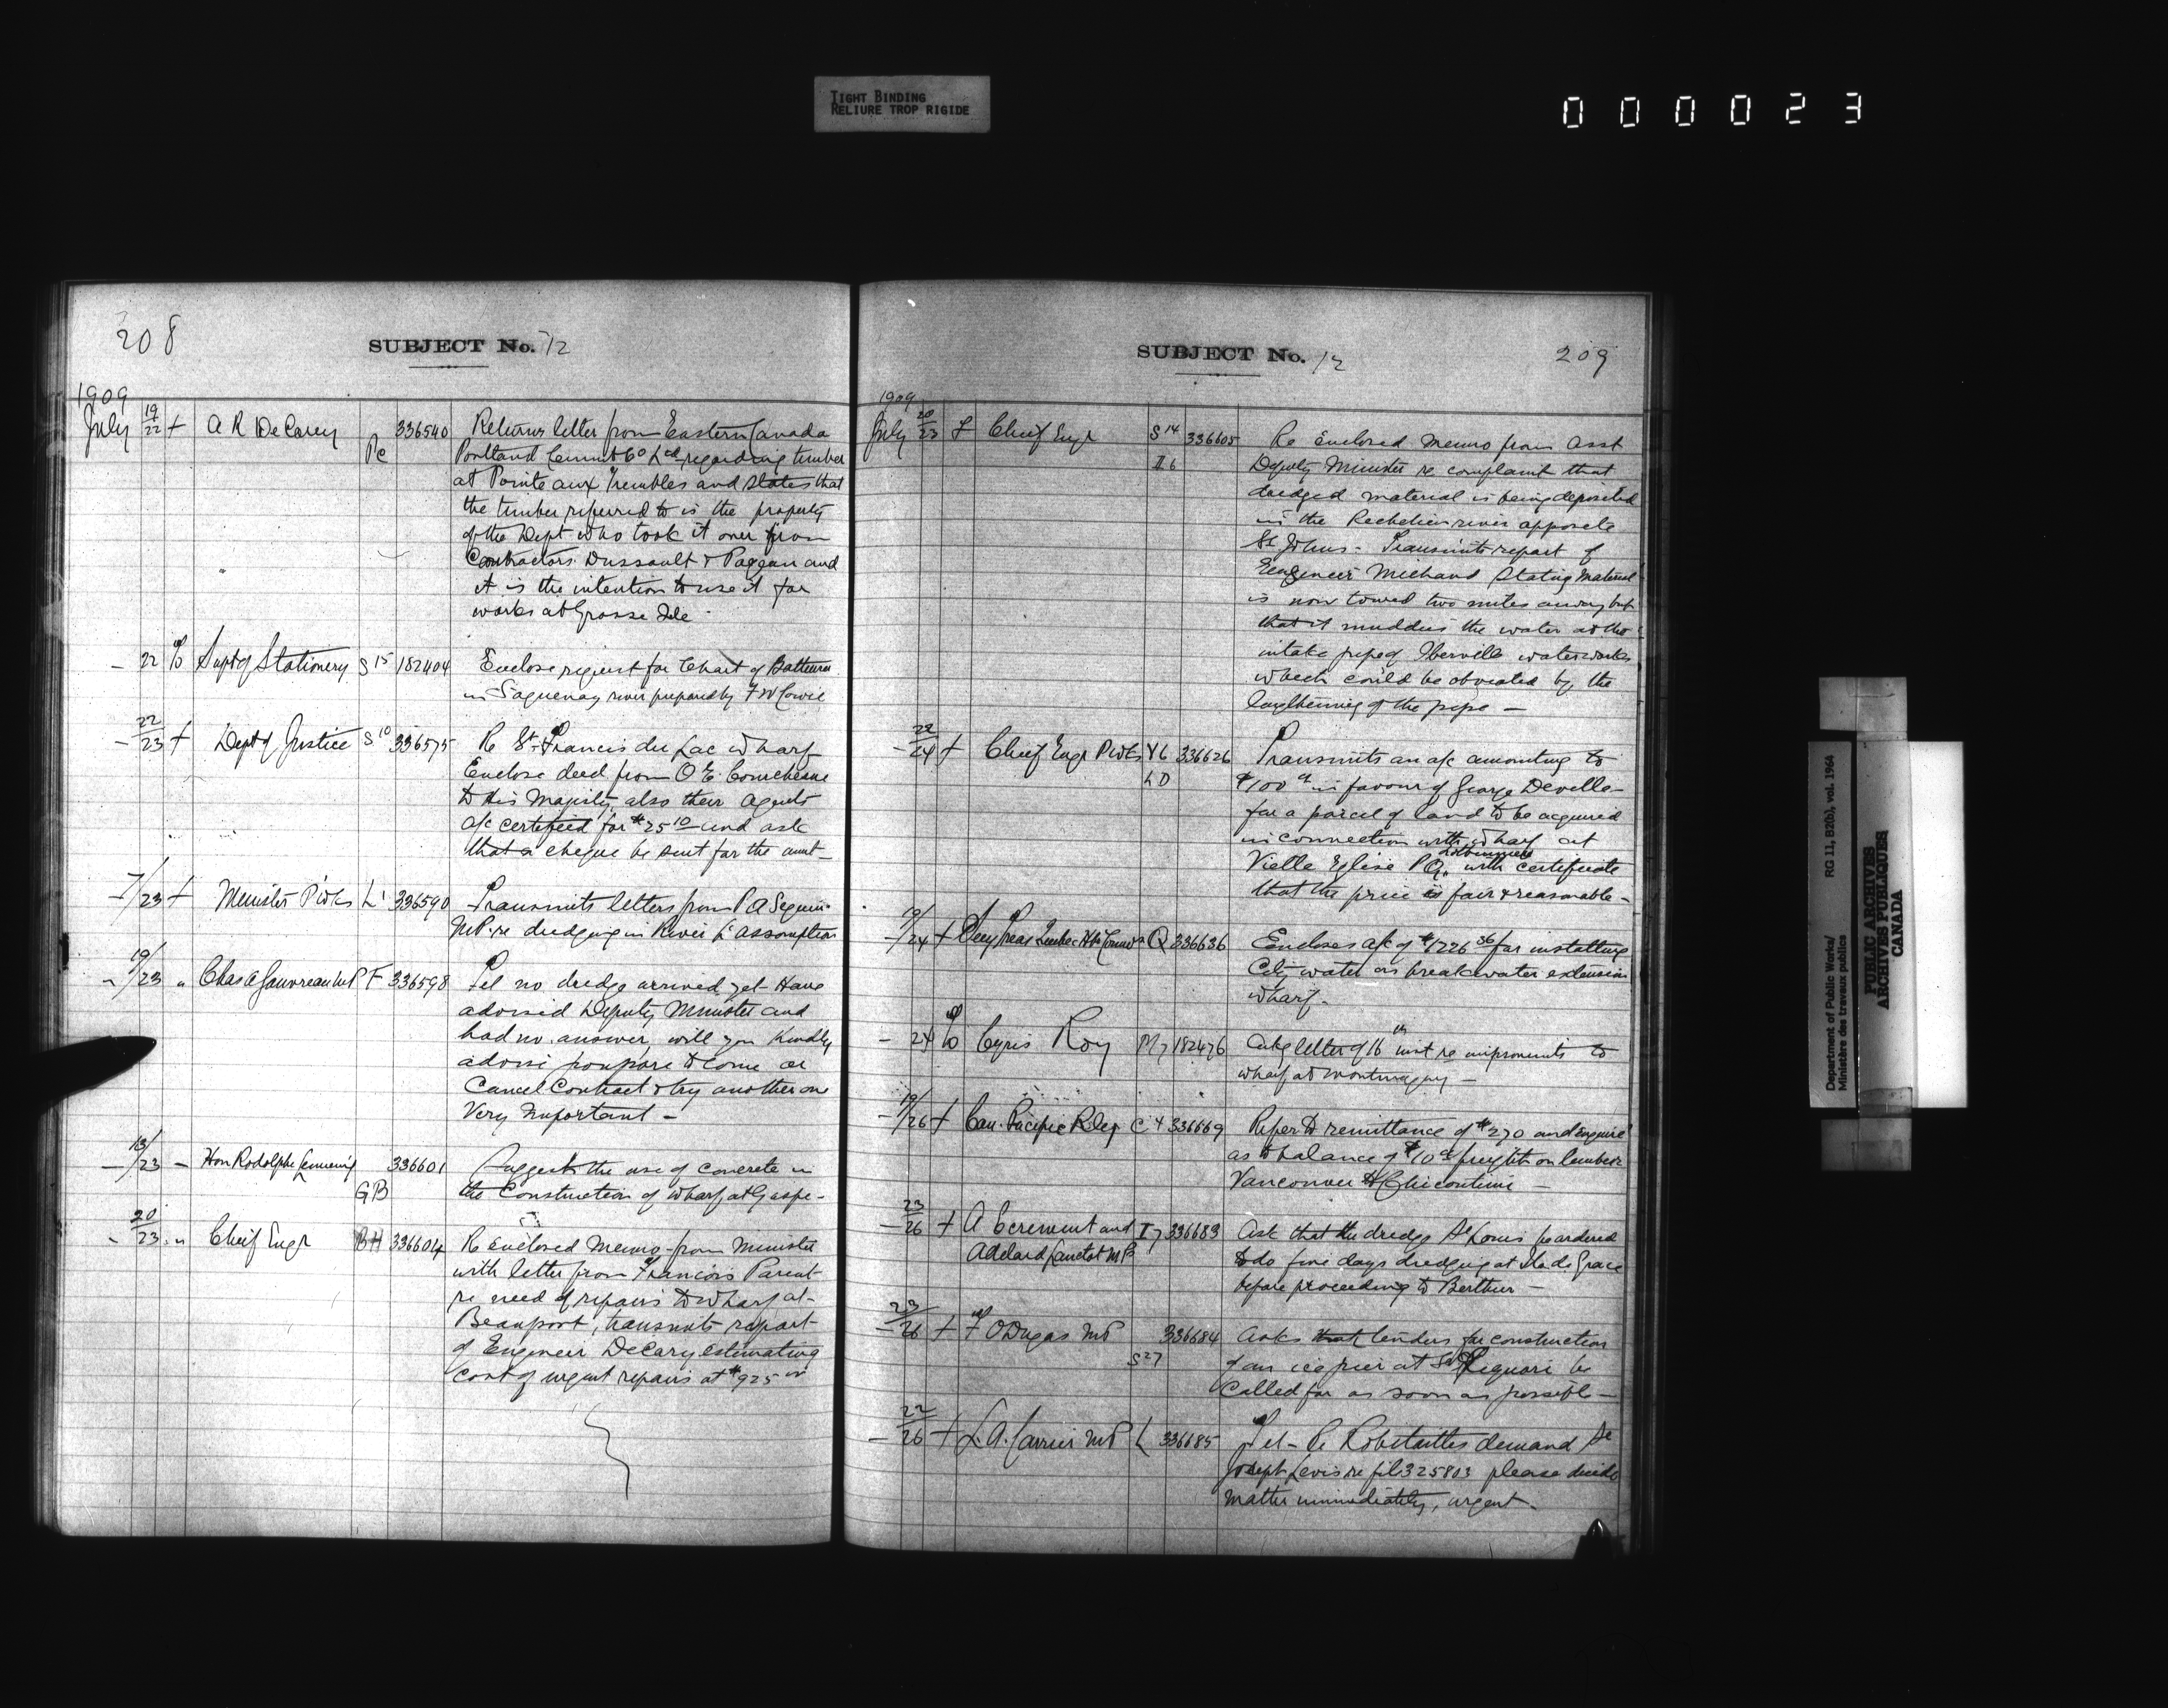 TIGHT BINDING
RELIURE TROP RIGIDE
000023
208
SUBJECT No. 12
1909
July 19/22 + A R DeCarey Pc 336540 Returns letter from Eastern Canada
Portland Cement Co Ltd regarding timber
at Pointe aux Trembles and states that
the timber referred to is the property
of the Dept who took it over from
Contractors Dussault & Pageau and
it is the intention to use it for
works at Grosse Isle
- 22 % Supt of Stationery S 15 182404 Enclose request for Chart of
in Saguenay river prepared by F W Cowie
- 22/23 + Dept of Justice S 10 336575 Re St Francis du Lac wharf
Enclose deed from O E
to His Majesty, also their agents
a/c certified for $25 10 and ask
that a cheque be sent for the amt -
- 7/23 + Minister P Wks L' 336590 Transmits letters from P A Seguin
MP re dredging in River L'assomption
- 19/23 " Chas A Gauvreau MP F 336598 Tel no dredge arrived yet Have
advised Deputy Minister and
had no answer will you kindly
advise to come or
Cancel Contract & try another one
Very Important -
- 13/23 - Hon Rodolphe Lemieux GB 336601 Suggests the use of concrete in
the Construction of wharf at Gaspe -
- 20/23 " Cheif Engr BH 336604 Re Enclosed Memo from Minister
with letter from Francois Parent
re need of repairs to wharf at -
Beauport, transmits report
of Engineer DeCary estimating
cost of urgent repairs at $925 00
SUBJECT No. 12
209
1909
July 20/23 + Cheif Engr S 14 336605 Re Enclosed Memo from Asst
II 6 Deputy Minister re complaint that
dredged material is being deposited
in the Rechelieu river opposite
St Johns - Transmits report of
Engineer Michaud stating material
is now towed two miles away but
that it muddies the water at the
intake pipe of Iberville waterworks
which could be obviated by the
lengthening of the pipe -
- 22/24 + Cheif Engr P Wks V6 336626 Transmits an a/c amounting to
LD $100 00 in favour of George Deville
for a parcel of land to be acquired
in connection with wharf at
Lotbiniere
Vielle Eglise P Q, with certificate
that the price is fair & reasonable -
- 19/24 + Secy Treas Quebec Hbr Commrs Q 336636 Encloses a/c of $1226 36 for installing
City water on breakwater extension
wharf -
- 24 % Cyris Roy M7 182476 Ackg letter of 16th inst re improvements to
wharf at Montmagny -
- 19/26 + Can. Pacific Rley C 4 336669 Refer to remittance of $270 and enquire
as to balance of $10 00 freight on lumber
Vancouver to Chicoutimi -
- 23/26 + A Ecrement and I 7 336683 Ask that the dredge St Louis be ordered
Adelard Lanctot MP to do five days dredging at Isle de Grace
before proceeding to Berthier -
- 23/26 + F O Dugas MP 336684 Asks that tenders for construction
S 27 of an ice pier at St Liguori be
Called for as soon as possible -
- 22/26 + L. A. Carrier MP L 336685 Tel - Re Robitailles demand St
Joseph Levis re file 325803 please decide
matter immediately, urgent -
Department of Public Works/
Ministère des travaux publics
RG 11, B2(b), vol. 1964
PUBLIC ARCHIVES
ARCHIVES PUBLIQUES
CANADA